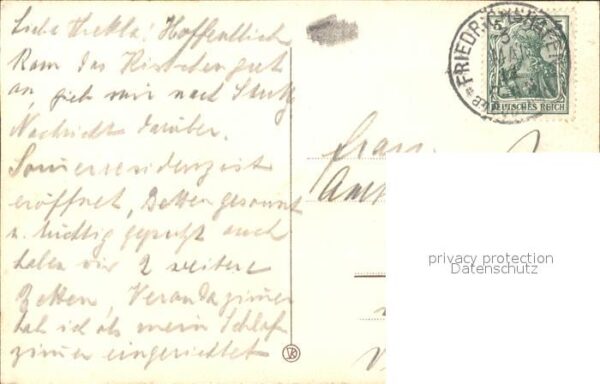 Liebe Thekla! Hoffentlich
kam das Kistchen gut
an, gieb mir nach Stuttg
Nachricht darüber.
Sommerresidenz ist
eröffnet, Betten gesonnt
u. tüchtig geputzt auch
haben wir 2 weitere
Betten, Verandazimer
hab ich als mein Schlaf
zimmer eingerichtet
FRIEDRICHSHAFEN
5
DEUTSCHES REICH
Frau
privacy protection
Datenschutz